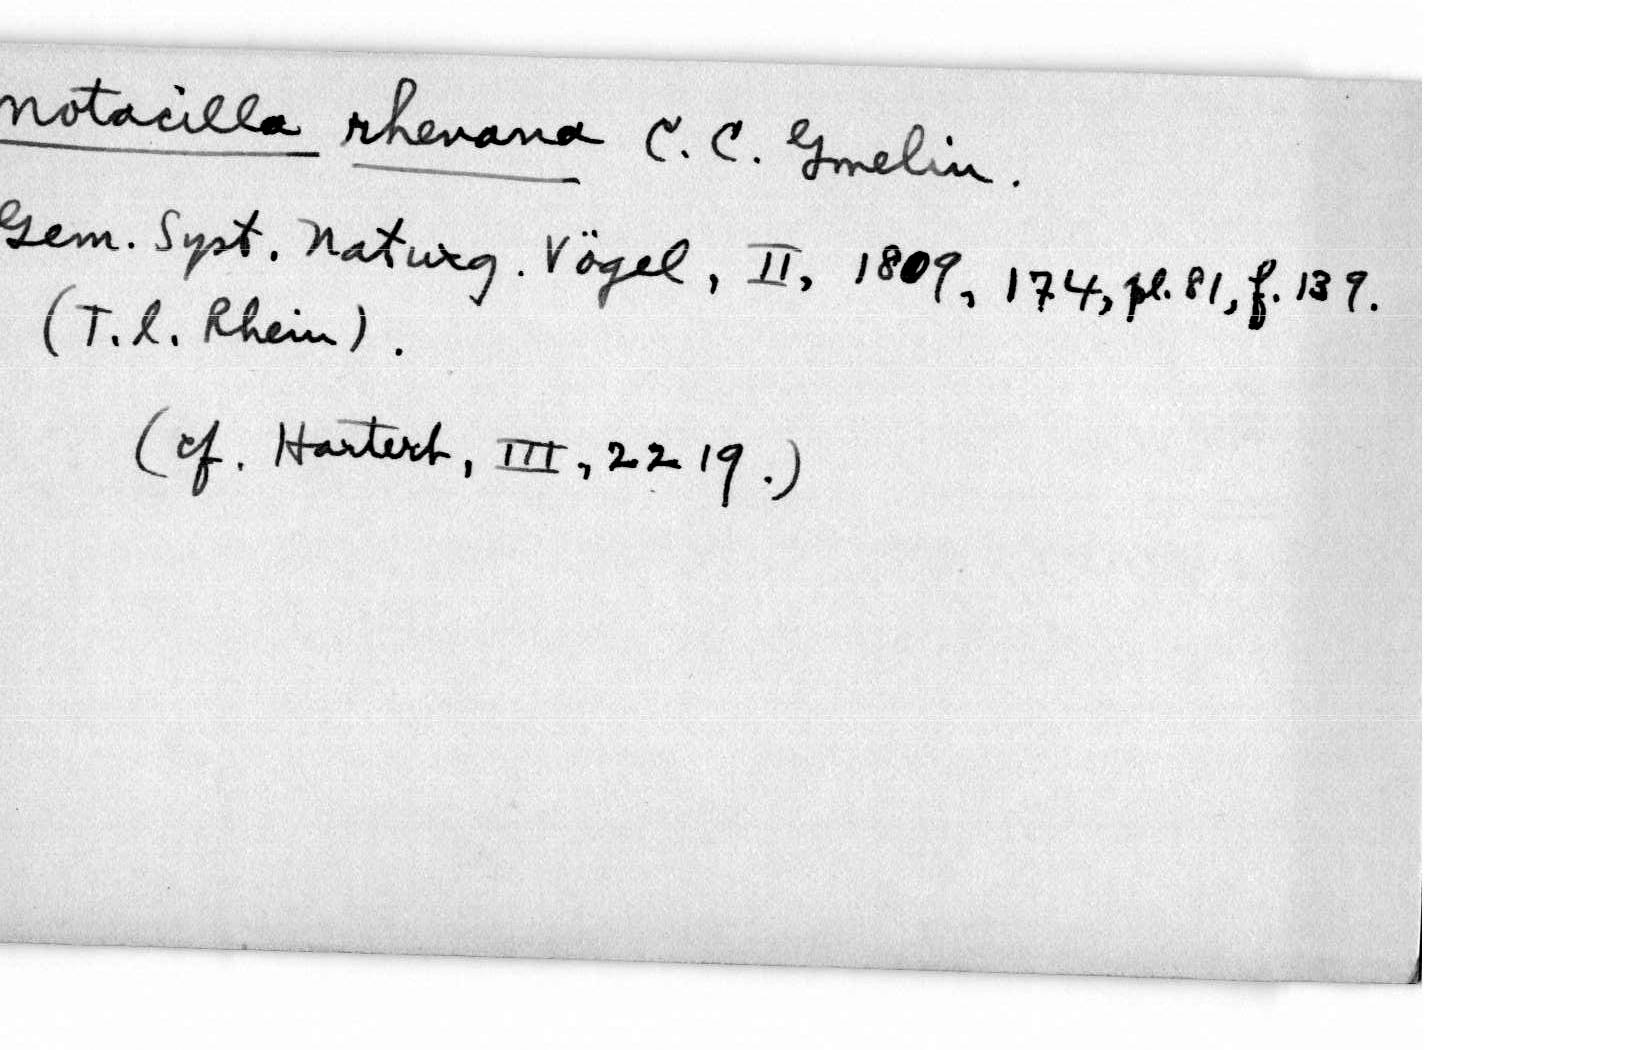 Motacilla rhenana C. C. Gmelin.
Gem. Syst. Naturg. Vögel, II, 1809, 174, pl. 81, f. 139.
(T. l. Rhein).
(cf. Hartert, III, 2219.)